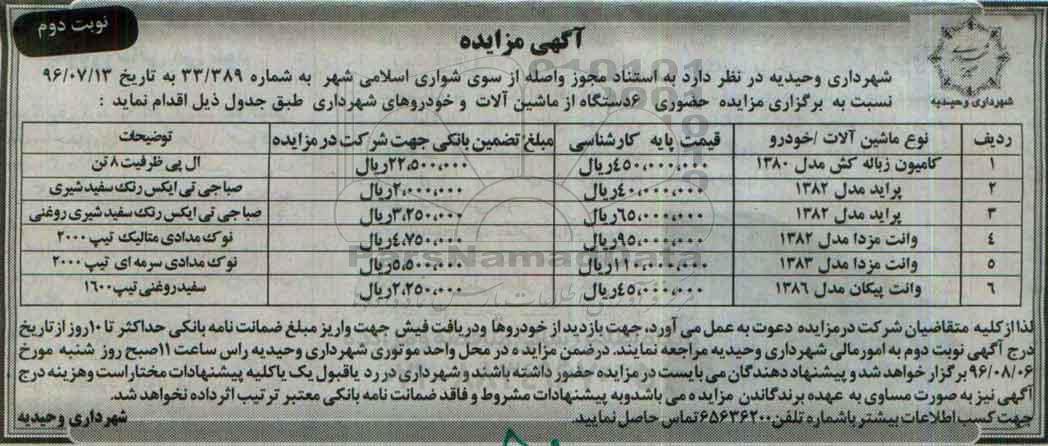 نوبت دوم
آگهی مزایده
شهرداری وحیدیه
شهرداری وحیدیه در نظر دارد به استناد مجوز واصله از سوی شواری اسلامی شهر به شماره ۳۳/۳۸۹ به تاریخ ۹۶/۰۷/۱۳
نسبت به برگزاری مزایده حضوری ۶دستگاه از ماشین آلات و خودروهای شهرداری طبق جدول ذیل اقدام نماید :
ردیف نوع ماشین آلات /خودرو قیمت پایه کارشناسی مبلغ تضمین بانکی جهت شرکت در مزایده توضیحات
۱ کامیون زباله کش مدل ۱۳۸۰ ۴۵۰،۰۰۰،۰۰۰ریال ۲۲،۵۰۰،۰۰۰ریال ال پی ظرفیت ۸ تن
۲ پراید مدل ۱۳۸۲ ۴۰،۰۰۰،۰۰۰ریال ۲،۰۰۰،۰۰۰ریال صبا جی تی ایکس رنگ سفید شیری
۳ پراید مدل ۱۳۸۲ ۶۵،۰۰۰،۰۰۰ریال ۳،۲۵۰،۰۰۰ریال صبا جی تی ایکس رنگ سفید شیری روغنی
۴ وانت مزدا مدل ۱۳۸۲ ۹۵،۰۰۰،۰۰۰ریال ۴،۷۵۰،۰۰۰ریال نوک مدادی متالیک تیپ ۲۰۰۰
۵ وانت مزدا مدل ۱۳۸۳ ۱۱۰،۰۰۰،۰۰۰ریال ۵،۵۰۰،۰۰۰ریال نوک مدادی سرمه ای تیپ ۲۰۰۰
۶ وانت پیکان مدل ۱۳۸۶ ۴۵،۰۰۰،۰۰۰ریال ۲،۲۵۰،۰۰۰ریال سفید روغنی تیپ ۱۶۰۰
لذا از کلیه متقاضیان شرکت در مزایده دعوت به عمل می آورد، جهت بازدید از خودروها ودریافت فیش جهت واریز مبلغ ضمانت نامه بانکی حداکثر تا ۱۰روز از تاریخ
درج آگهی نوبت دوم به امور مالی شهرداری وحیدیه مراجعه نمایند. در ضمن مزایده در محل واحد موتوری شهرداری وحیدیه راس ساعت ۱۱صبح روز شنبه مورخ
۹۶/۰۸/۰۶ برگزار خواهد شد و پیشنهاد دهندگان می بایست در مزایده حضور داشته باشند و شهرداری در رد یاقبول یک یاکلیه پیشنهادات مختار است وهزینه درج
آگهی نیز به صورت مساوی به عهده برندگاندن مزایده می باشدوبه پیشنهادات مشروط و فاقد ضمانت نامه بانکی معتبر ترتیب اثر داده نخواهد شد.
جهت کسب اطلاعات بیشتر باشماره تلفن ۶۵۶۳۶۲۰۰تماس حاصل نمایید.
شهرداری وحیدیه
ParsNamadData